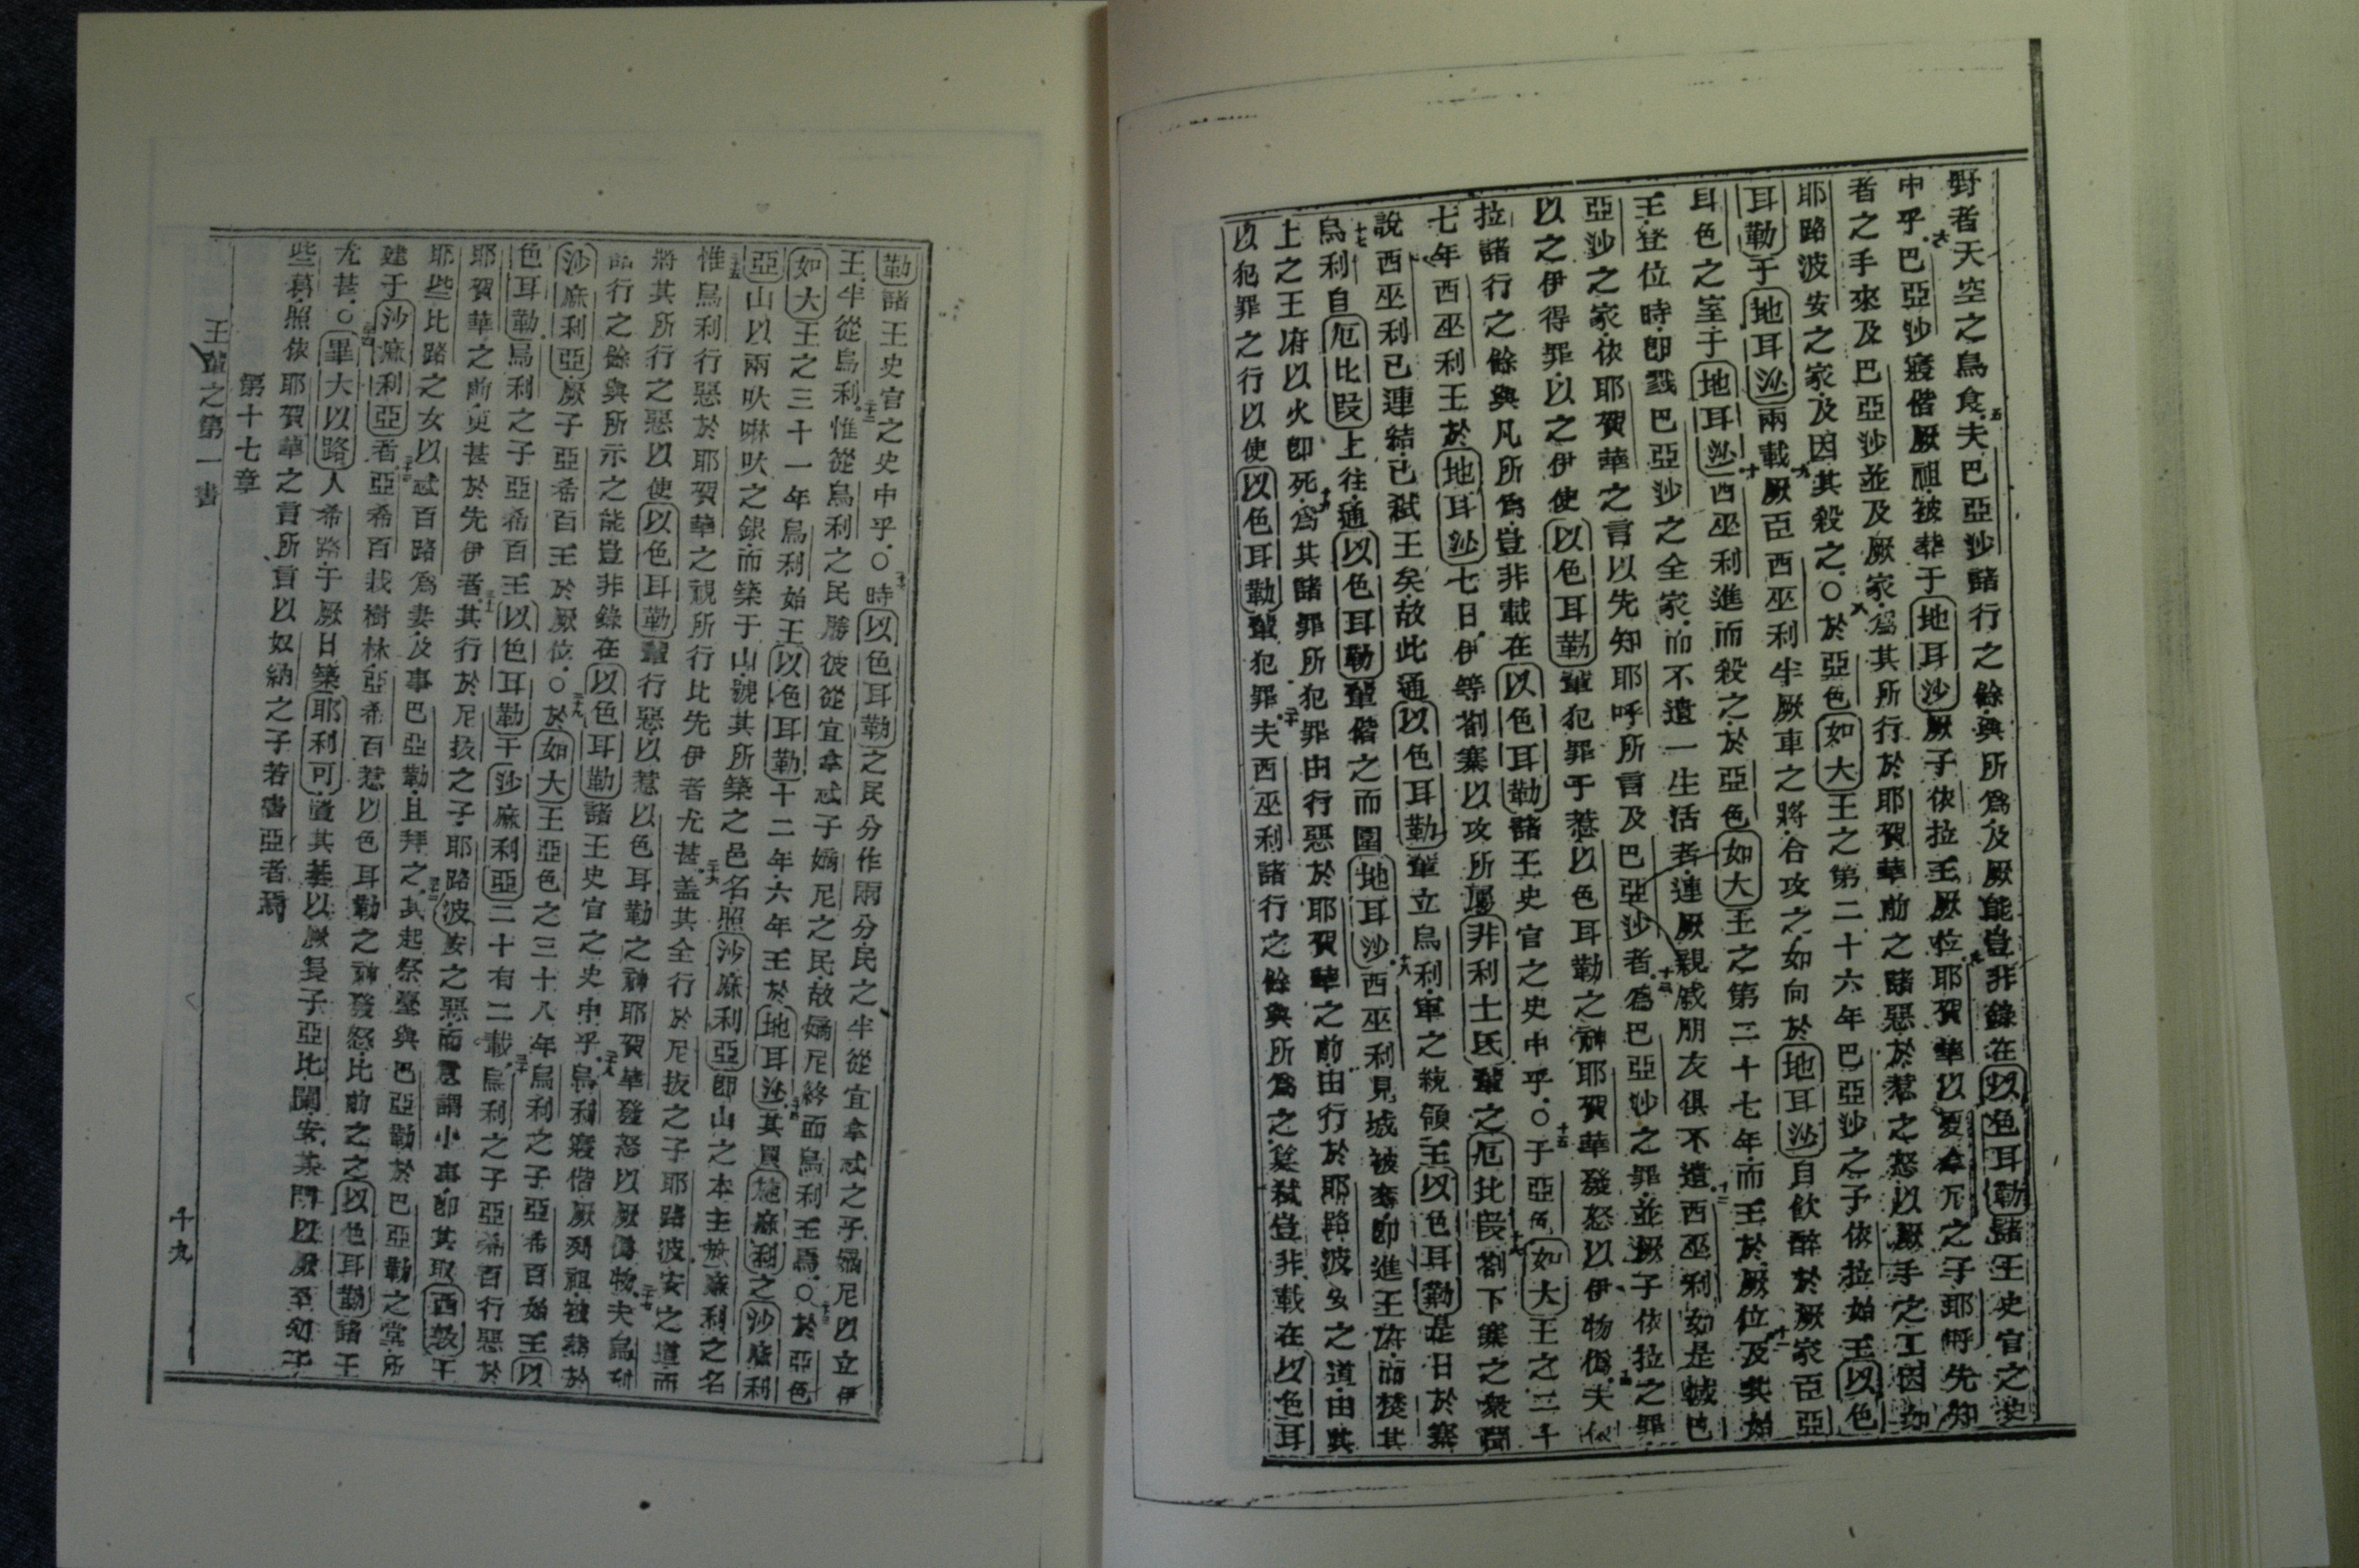 野者天空之鳥食夫巴亞沙諸行之餘與所為及厥能豈非錄在以色耳勒諸王史官之史
中乎巴亞沙寢偕厥祖被葬于地耳沙厥子依拉王厥位耶賀華以夏拿尼之子耶呼先知
者之手來及巴亞沙並及厥家為其所行於耶賀華前之諸惡於惹之怒以厥手之工因如
耶路波安之家及因其殺之○於亞色如大王之第二十六年巴亞沙之子依拉始王以色
耳勒于地耳沙兩載厥臣西巫利半厥車之將合攻之如向於地耳沙自飲醉於厥家臣亞
耳色之室于地耳沙西巫利進而殺之於亞色如大王之第二十七年而王於厥位及其始
王登位時即戮巴亞沙之全家而不遺一生活者連厥親戚朋友俱不遺西巫利如是滅巴
亞沙之家依耶賀華之言以先知耶呼所言及巴亞沙者為巴亞沙之罪並厥子依拉之罪
以之伊得罪以之伊使以色耳勒輩犯罪于惹以色耳勒之神耶賀華發怒以伊物偽夫依
拉諸行之餘與凡所為豈非載在以色耳勒諸王史官之史中乎○于亞色如大王之二十
七年西巫利王於地耳沙七日伊等劄寨以攻所屬非利士氏輩之厄比段劄下寨之衆聞
說西巫利已連結已弒王矣故此通以色耳勒輩立烏利軍之統領王以色耳勒是日於寨
烏利自厄比段上往通以色耳勒輩偕之而圍地耳沙西巫利見城被奪即進王府而焚其
上之王府以火即死為其諸罪所犯罪由行惡於耶賀華之前由行於耶路波安之道由其
以犯罪之行以使以色耳勒輩犯罪夫西巫利諸行之餘與所為之奚弒豈非載在以色耳
勒諸王史官之史中乎○時以色耳勒之民分作兩分民之半從宜拿忒之子嬀尼以立伊
王半從烏利惟從烏利之民勝彼從宜拿忒子嬀尼之民故嬀尼終而烏利王焉○於亞色
如大王之三十一年烏利始王以色耳勒十二年六年王於地耳沙其買施麻利之沙麻利
亞山以兩呔啉呔之銀而築于山號其所築之邑名照沙麻利亞即山之本主施麻利之名
惟烏利行惡於耶賀華之視所行比先伊者尤甚蓋其全行於尼拔之子耶路波安之道而
將其所行之惡以使以色耳勒輩行惡以惹以色耳勒之神耶賀華發怒以厥偽物夫烏利
諸行之餘與所示之能豈非錄在以色耳勒諸王史官之史中乎烏利寢偕厥列祖被葬於
沙麻利亞厥子亞希百王於厥位○於如大王亞色之三十八年烏利之子亞希百始王以
色耳勒烏利之子亞希百王以色耳勒于沙麻利亞二十有二載烏利之子亞希百行惡於
耶賀華之前更甚於先伊者其行於尼拔之子耶路波安之惡而意謂小事即其取西敦王
耶些比路之女以忒百路為妻及事巴亞勒且拜之其起祭臺與巴亞勒於巴亞勒之堂所
建于沙麻利亞者亞希百栽樹林亞希百惹以色耳勒之神發怒比前之之以色耳勒諸王
尤甚○畢大以路人希路于厥日築耶利可置其基以厥長子亞比闌安其門以厥至幼子
些葛照依耶賀華之言所言以奴納之子若書亞者焉
第十七章
王輩之第一書
十九